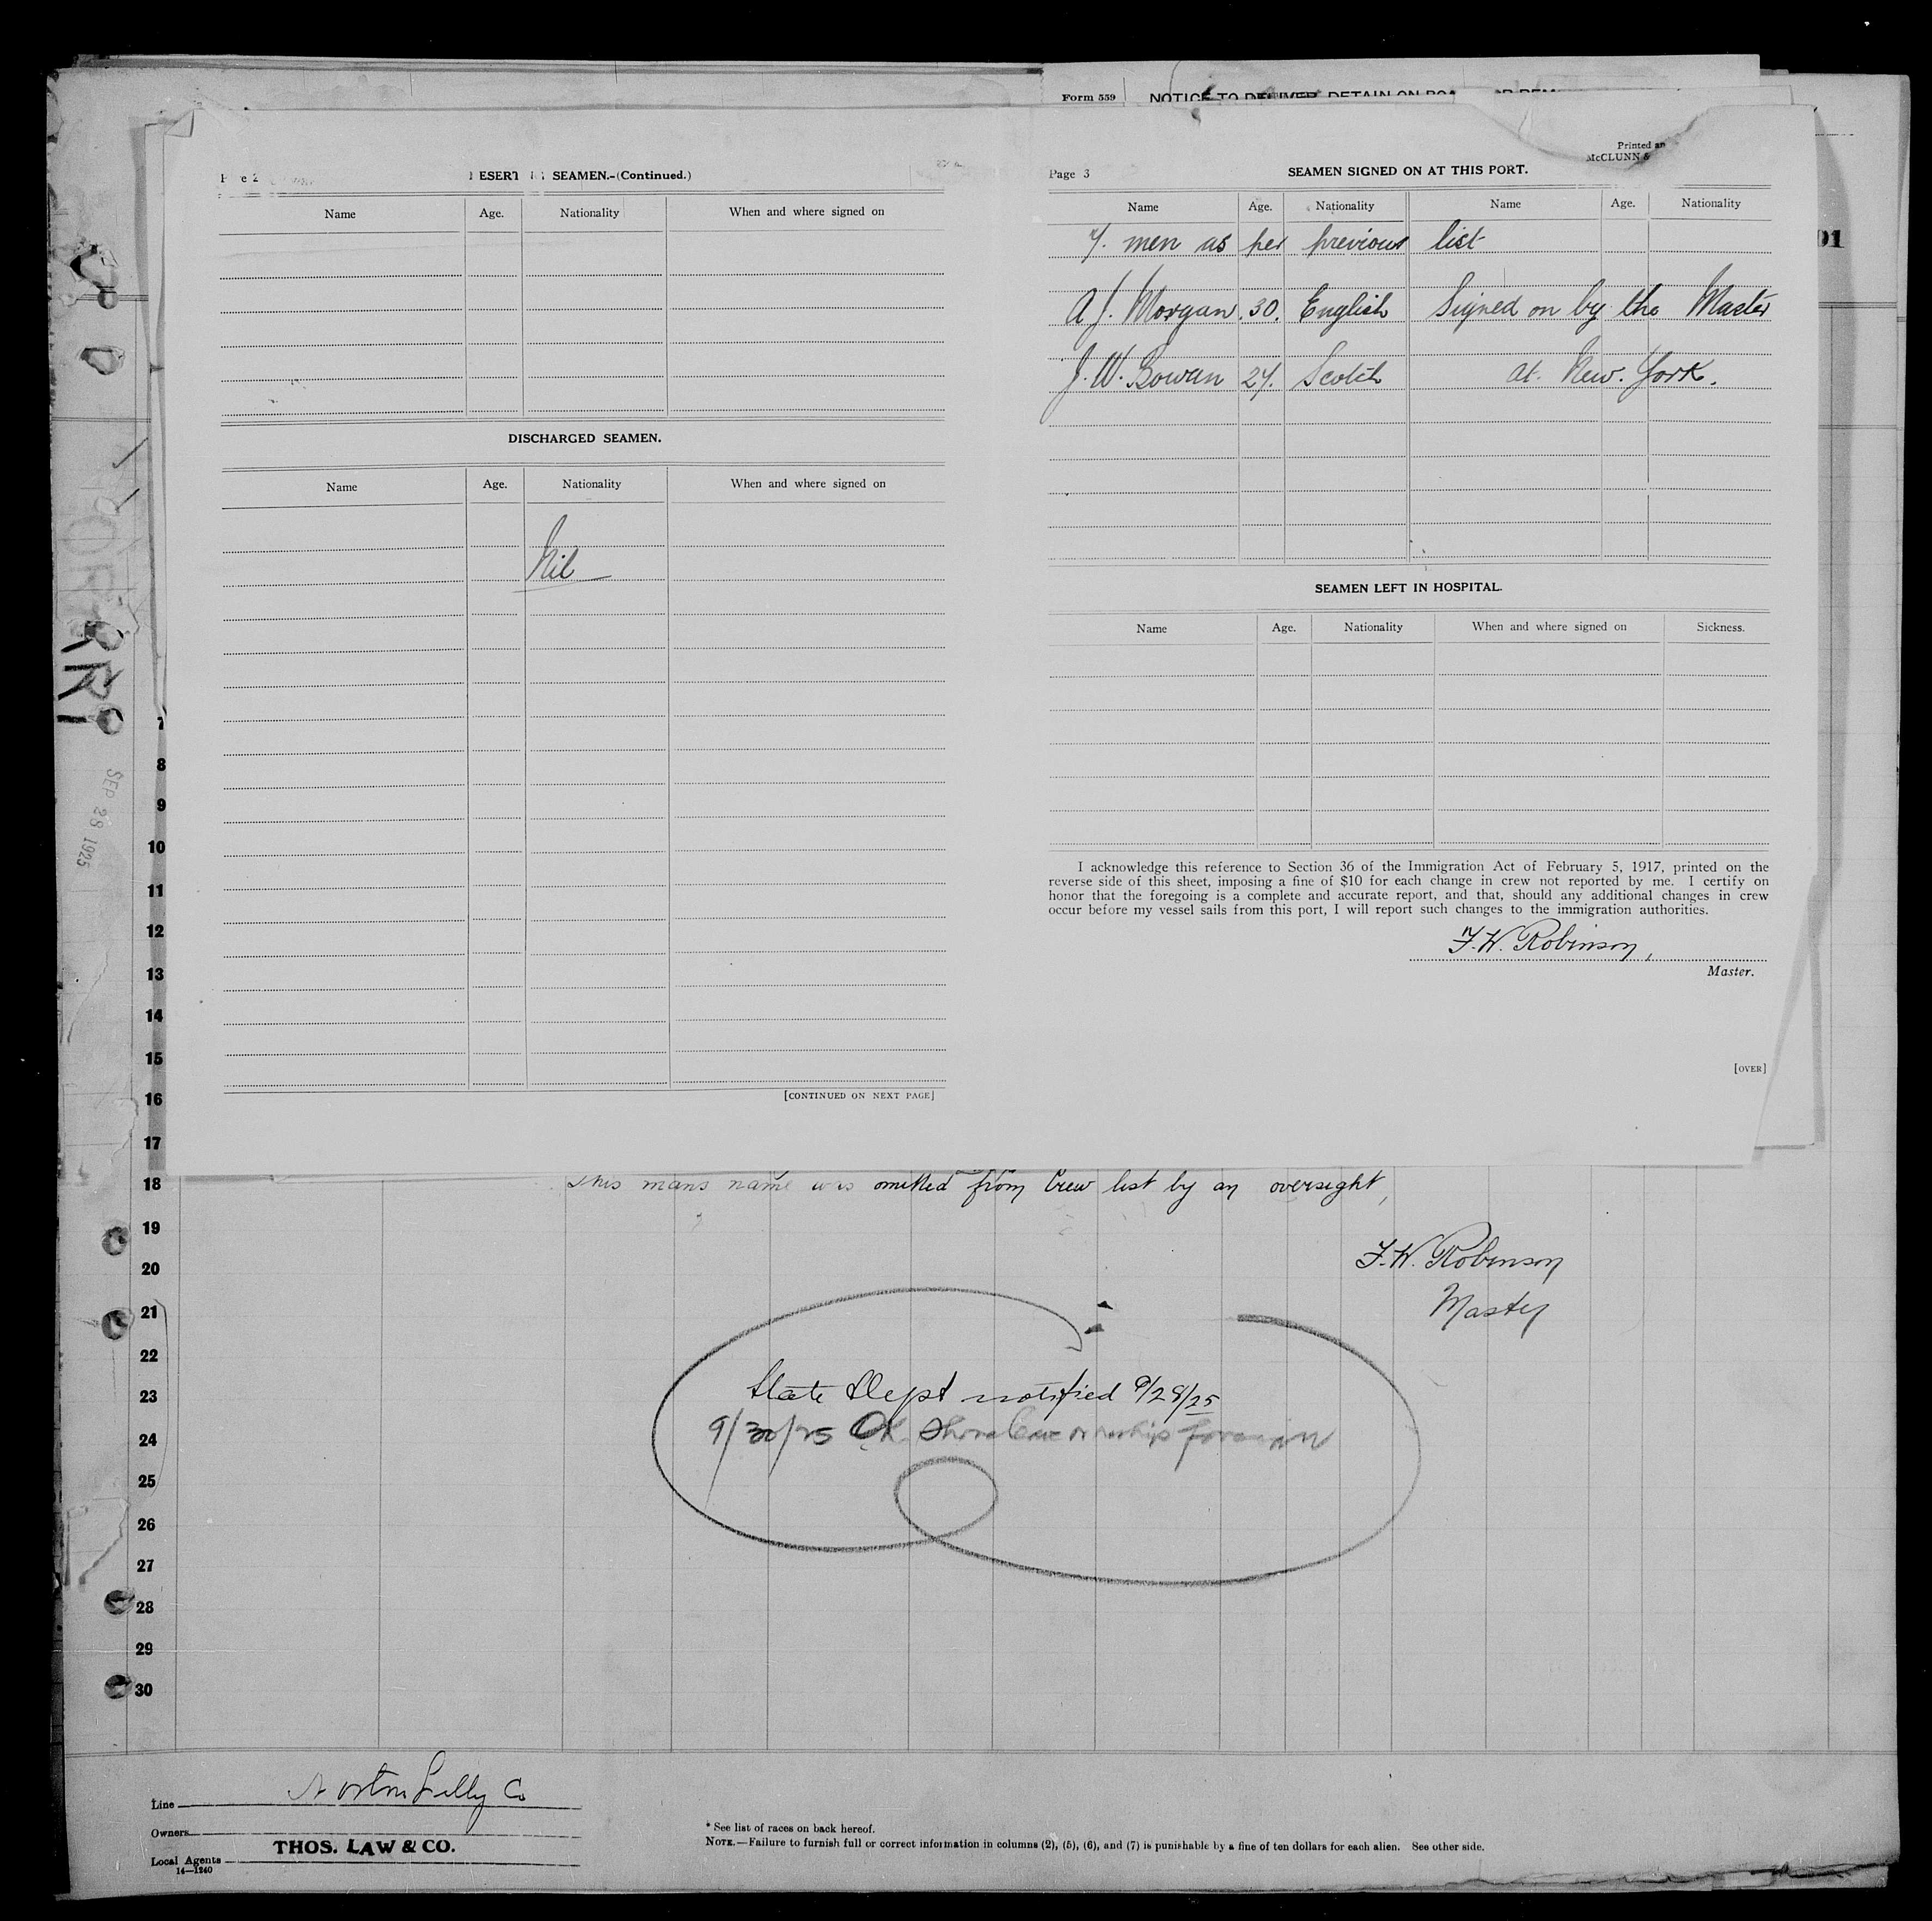 Form 559 NOTICE TO DELIVER, DETAIN ON
Printed an
McCLUNN &
Page 2 DESERT SEAMEN.-(Continued.)
Name Age. Nationality When and where signed on
DISCHARGED SEAMEN.
Name Age. Nationality When and where signed on
Nil
[CONTINUED ON NEXT PAGE]
Page 3 SEAMEN SIGNED ON AT THIS PORT.
Name Age. Nationality Name Age. Nationality
7. men as per previous list
A J. Morgan. 30. English Signed on by the Master
J. W. Bowan 27. Scotch at New. York.
SEAMEN LEFT IN HOSPITAL.
Name Age. Nationality When and where signed on Sickness.
I acknowledge this reference to Section 36 of the Immigration Act of February 5, 1917, printed on the
reverse side of this sheet, imposing a fine of $10 for each change in crew not reported by me. I certify on
honor that the foregoing is a complete and accurate report, and that, should any additional changes in crew
occur before my vessel sails from this port, I will report such changes to the immigration authorities.
F. W. Robinson,
Master.
[OVER]
SEP 28 1925
7
8
9
10
11
12
13
14
15
16
17
18 This mans name was omitted from Crew list by an oversight,
19
F. W. Robinson
20
Master
21
22
23 State Dept notified 9/28/25
24 9/30/25 OK
25
26
27
28
29
30
Line Norton Lilly Co
Owners
THOS. LAW & CO.
Local Agents
14—1240
* See list of races on back hereof.
NOTE.—Failure to furnish full or correct information in columns (2), (5), (6), and (7) is punishable by a fine of ten dollars for each alien. See other side.